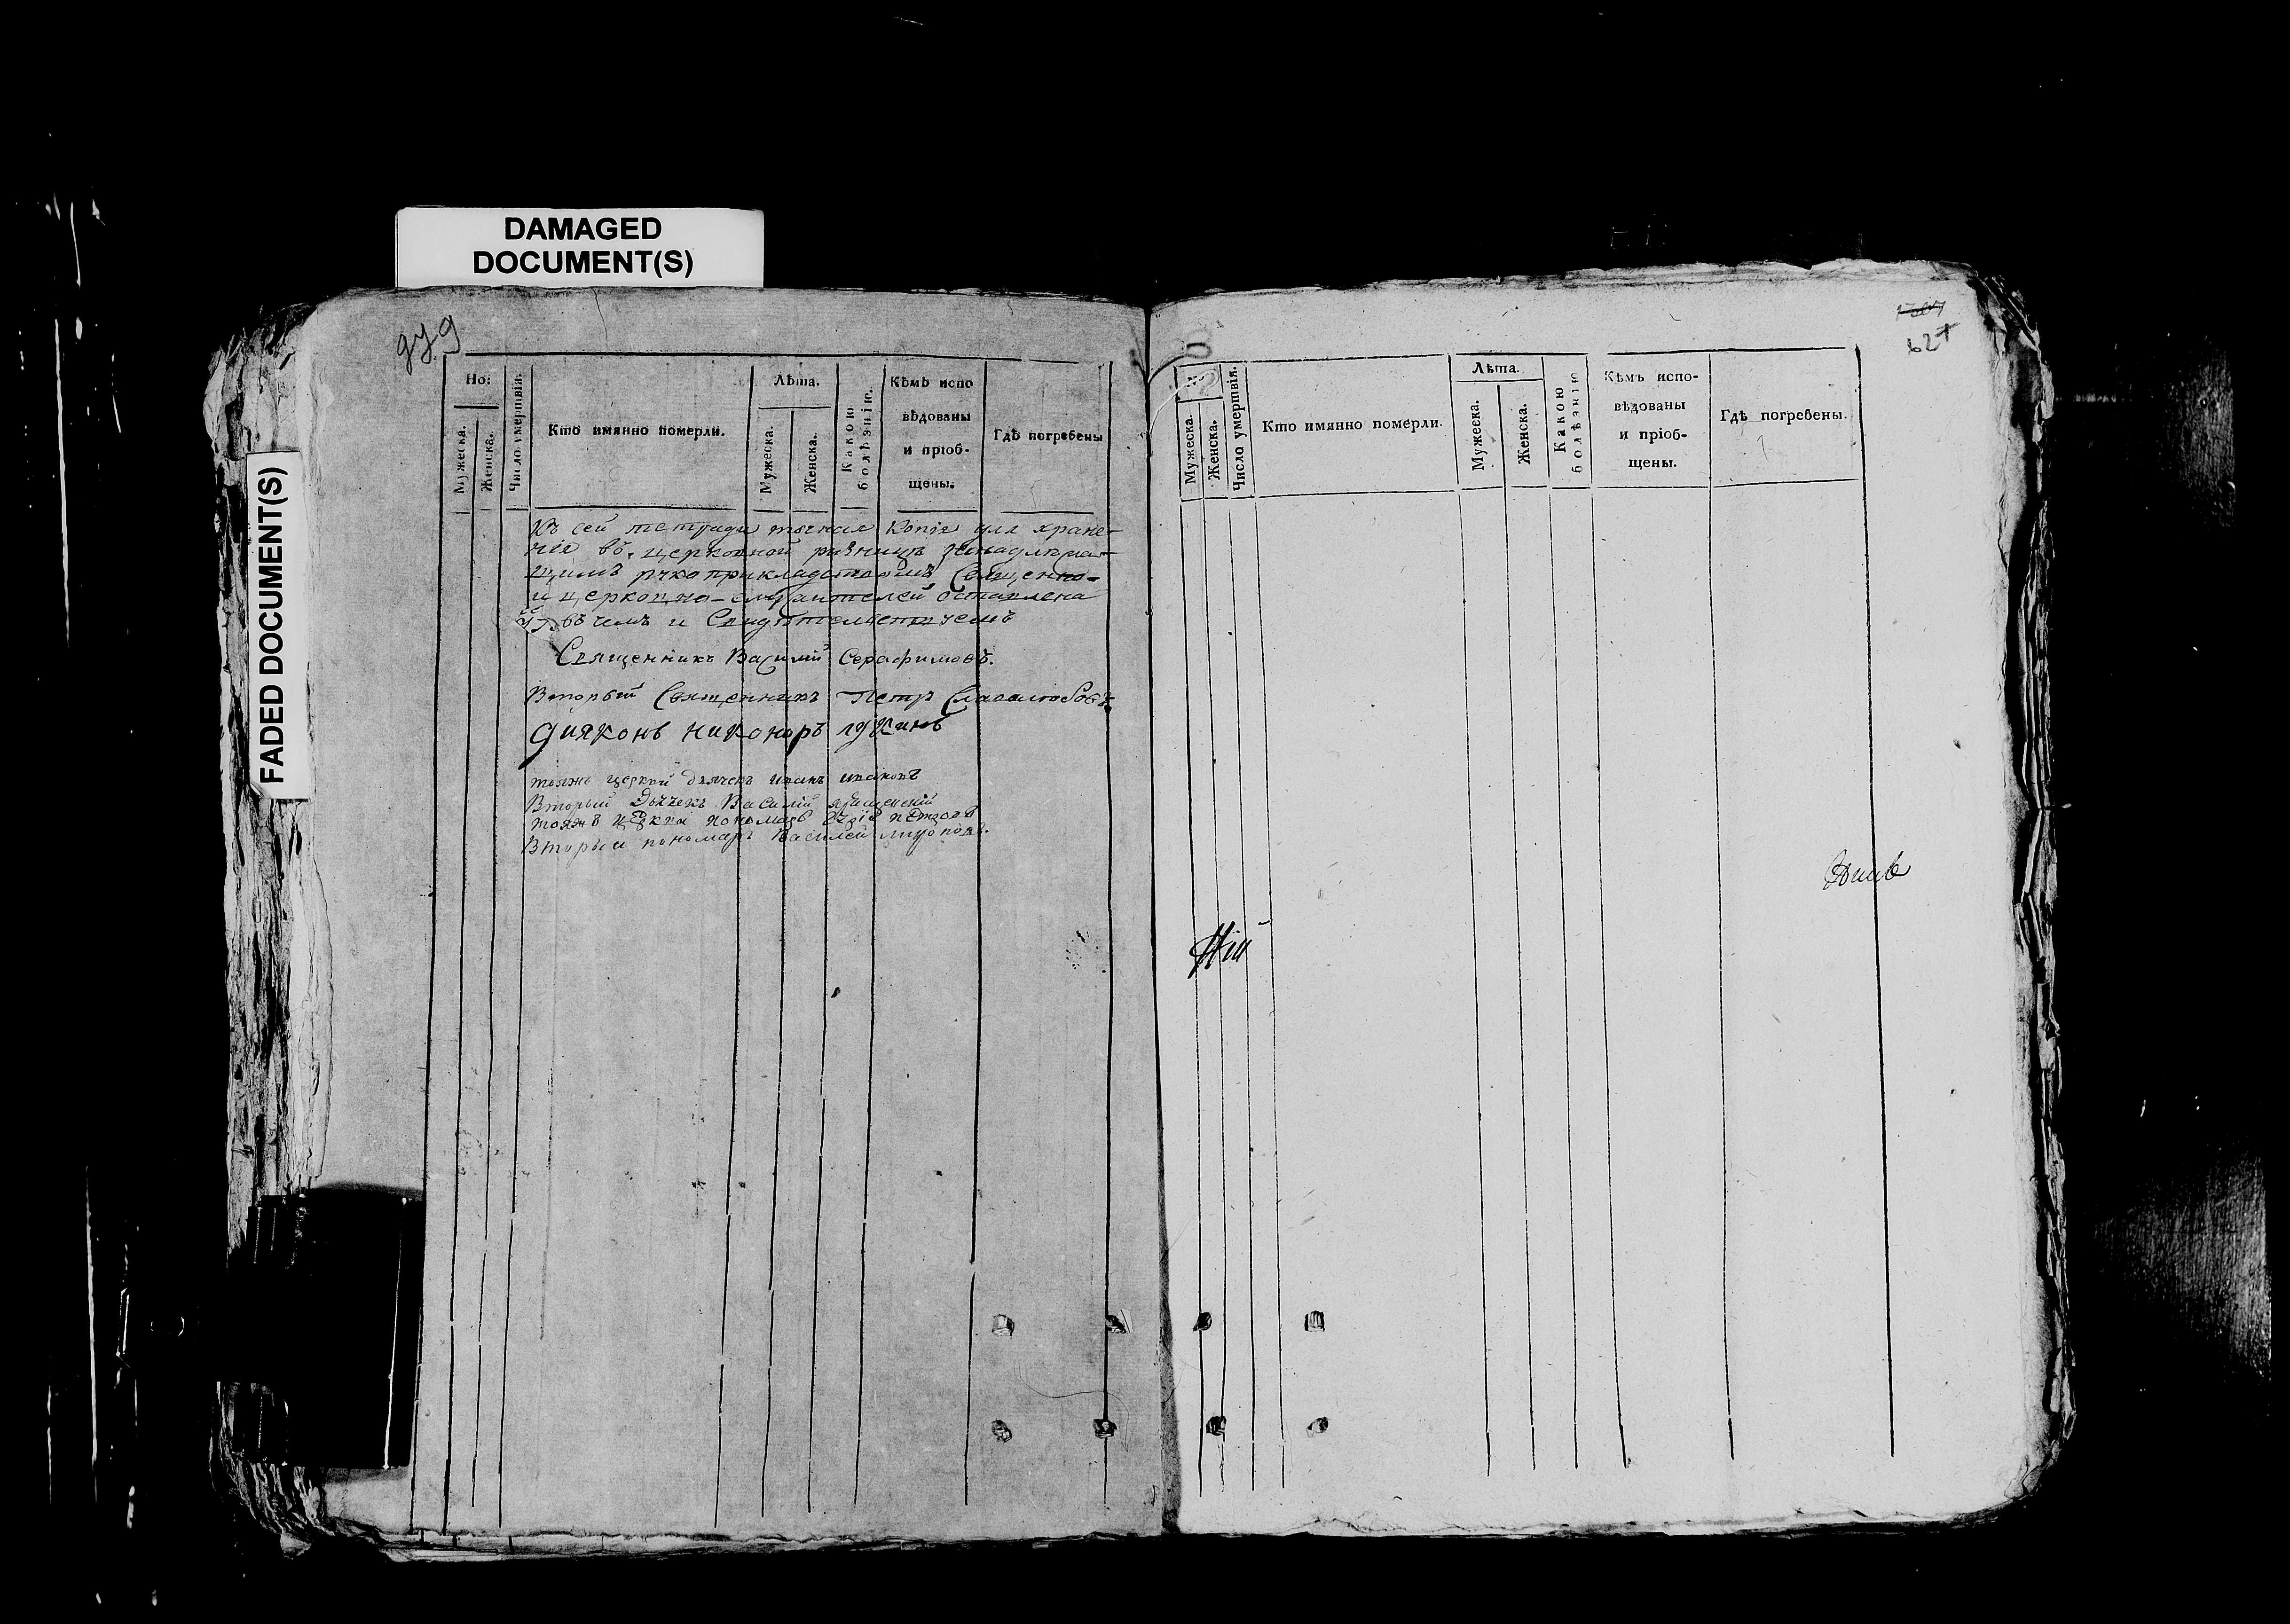 DAMAGED
DOCUMENT(S)
FADED DOCUMENT(S)
Но:
Мужеска.
Женска.
Число умертвія.
Кто имянно померли.
Лѣта.
Мужеска.
Женска.
Какою
болѣзнію.
Кѣмъ испо
вѣдованы
и пріоб-
щены.
Гдѣ погребены
Къ сей тетради точная копія для хране-
нія въ церковной ризницѣ
щимъ рукоприкладствомъ Священно-
и церковно-служителей оставлена
въ чемъ и Свидѣтельствуемъ
Священникъ Василій Серафимовъ.
Вторый Священникъ Петръ Славолюбовъ
Дияконъ Никоноръ Лукинъ
тояже церкви дьячекъ Иванъ Ивановъ
Вторый Дьячекъ Василій
тояжъ церкви пономарь Петровъ
Вторый пономарь Василей
627
Мужеска.
Женска.
Число умертвія.
Кто имянно померли.
Лѣта.
Мужеска.
Женска.
Какою
болѣзнію
Кѣмъ испо-
вѣдованы
и пріоб-
щены.
Гдѣ погребены.